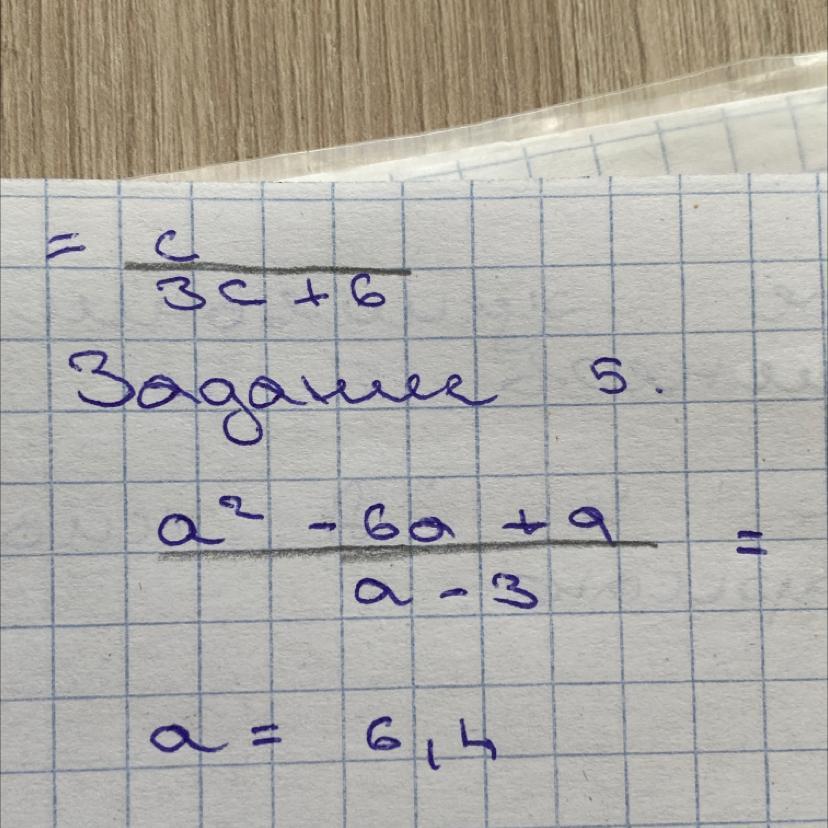 = c
3c + 6
Задание 5.
a² - 6a + 9 =
a - 3
a = 6,4